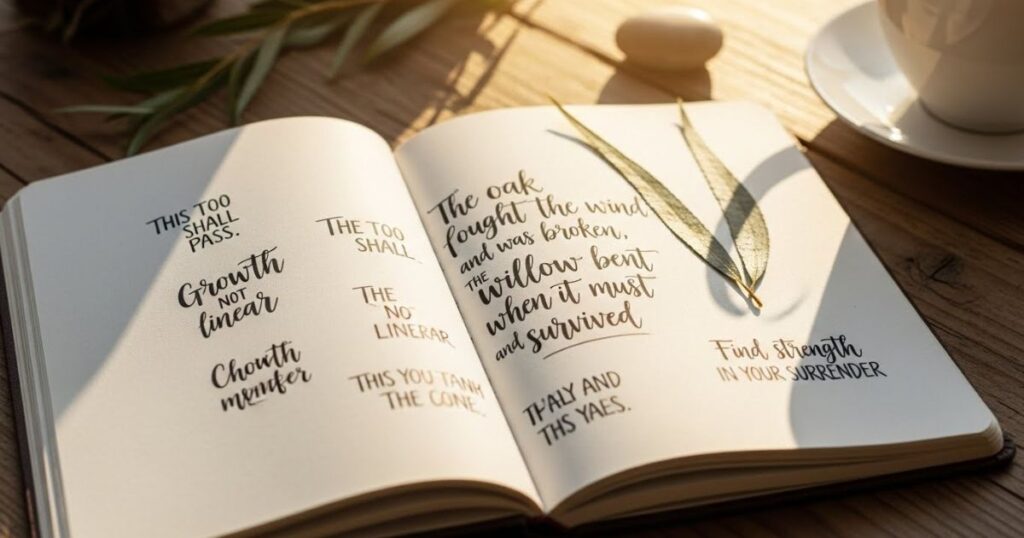 THIS TOO
SHALL
PASS.
Growth
NOT
linear
Chowth
THE TOO
SHALL
THE
NO
LINERAR
THIS YOU TANK
THE CONE.
The oak
fought the wind
and was broken,
THE willow bent
when it must
and survived
THALY AND
THS YAES.
Find strength
IN YOUR SURRENDER